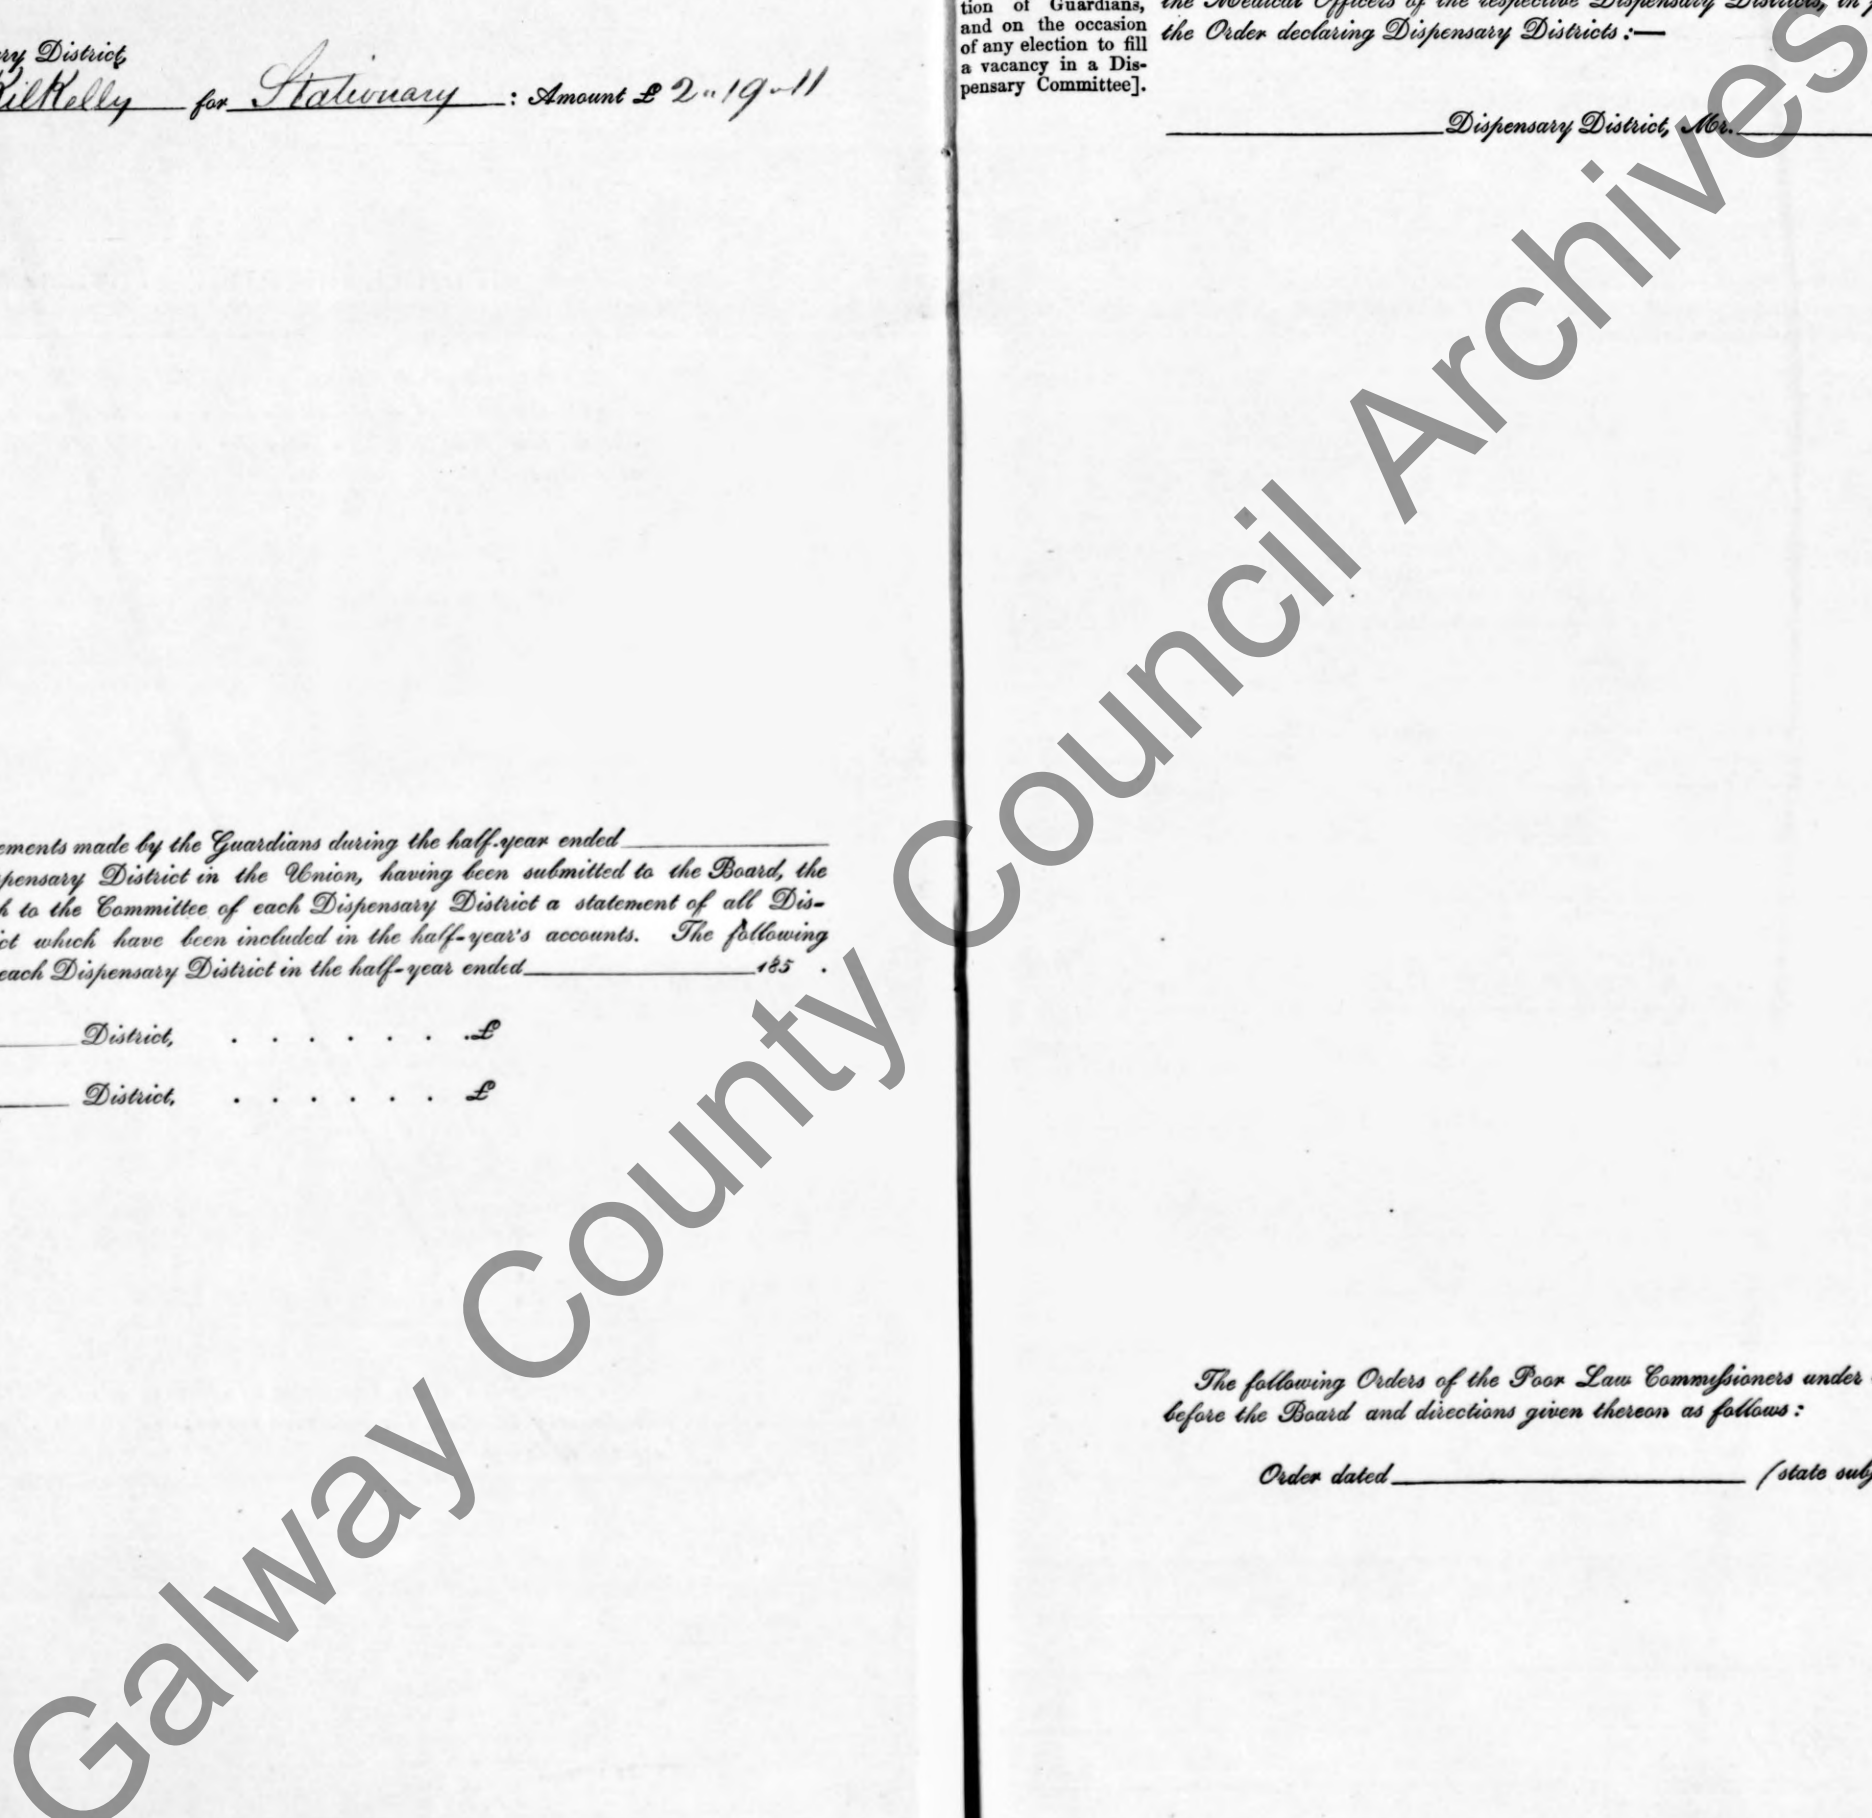 ry District,
Kilkelly for Stationary : Amount £ 2"19"11
ements made by the Guardians during the half-year ended
pensary District in the Union, having been submitted to the Board, the
h to the Committee of each Dispensary District a statement of all Dis-
ict which have been included in the half-year's accounts. The following
each Dispensary District in the half-year ended 185 .
District, . . . . . . .£
District, . . . . . . £
tion of Guardians,
and on the occasion
of any election to fill
a vacancy in a Dis-
pensary Committee].
the Medical Officers of the respective Dispensary Districts, in
the Order declaring Dispensary Districts :—
Dispensary District, Mr.
The following Orders of the Poor Law Commissioners under
before the Board and directions given thereon as follows :
Order dated (state sub
Galway County Council Archives